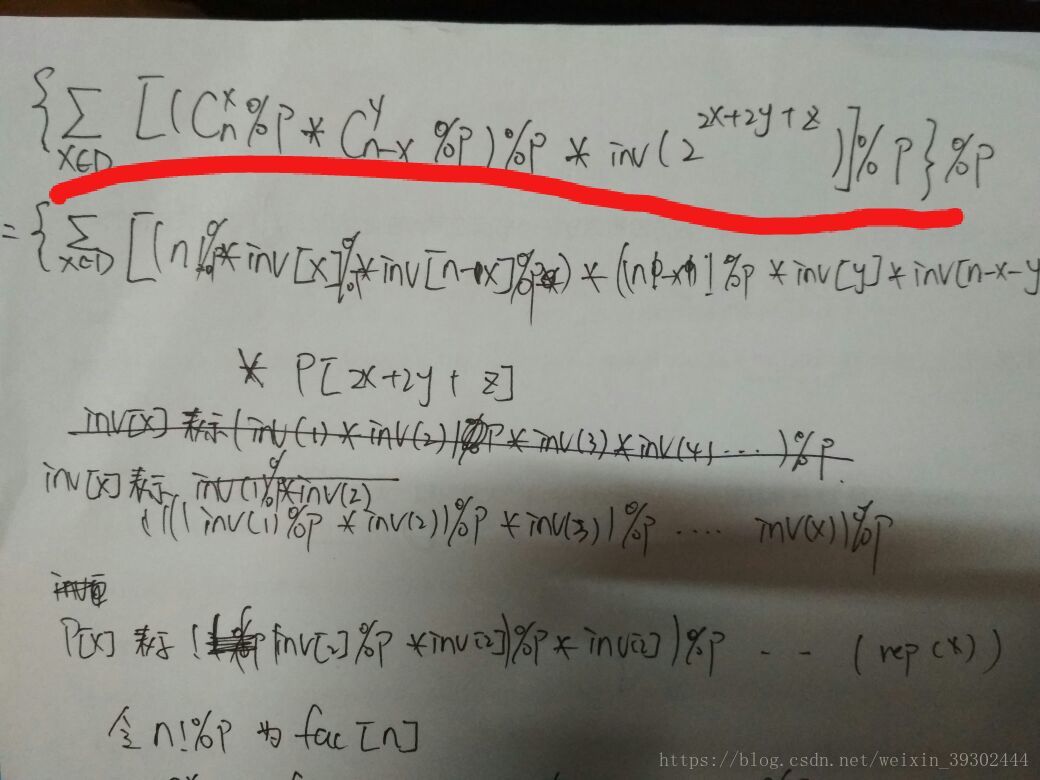 {∑ [(C_n^x %P * C_{n-x}^y %P)%P * inv(2^{2x+2y+z})]%P}%P
x∈D
= {∑ [(n!%P * inv[x]%P * inv[n-x]%P) * ((n-x)!%P * inv[y] * inv[n-x-y
x∈D
* P[2x+2y+z]
inv[x] 表示(inv(1)*inv(2)%P*inv(3)*inv(4)....)%P
inv[x] 表示 inv(1)%P*inv(2)
((((inv(1)%P*inv(2))%P*inv(3))%P .... inv(x))%P
P[x] 表示 (inv[2]%P*inv[2])%P*inv[2])%P -- (rep(x))
令 n!%P 为 fac[n]
https://blog.csdn.net/weixin_39302444